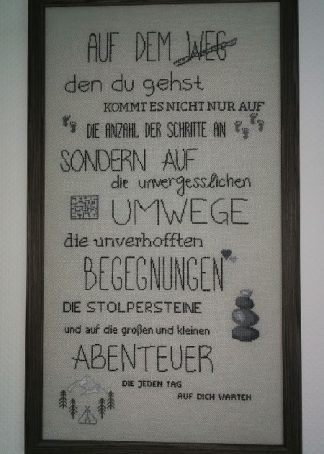 AUF DEM WEG
den du gehst
KOMMT ES NICHT NUR AUF
DIE ANZAHL DER SCHRITTE AN
SONDERN AUF
die unvergesslichen
UMWEGE
die unverhofften
BEGEGNUNGEN
DIE STOLPERSTEINE
und auf die großen und kleinen
ABENTEUER
DIE JEDEN TAG
AUF DICH WARTEN